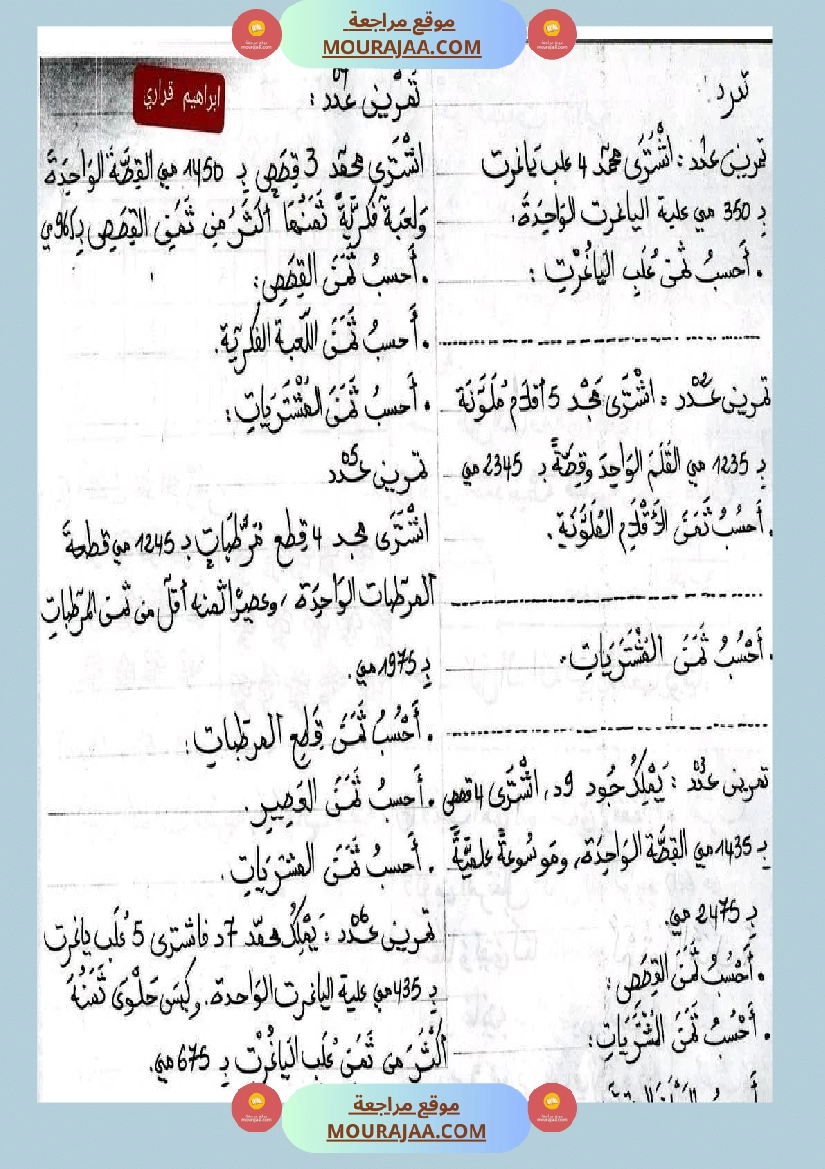 موقع مراجعة
MOURAJAA.COM
تمرين عدد : اشْتَرَى محمّد 4 علب ياغرت
بِـ 350 مي علبة الياغرت الوَاحِدَة.
. أَحسبُ ثمَن عُلَبِ اليَاغُرْتِ :
تمرين عدد 02 : اشْتَرَى مَجْد 5 أقلام مُلَوَّنَة
بِـ 1235 مي القَلَمَ الوَاحِدَ وقِصَّةً بـ 2345 مي
. أَحسُبُ ثَمَنَ الأَقْلَامِ المُلَوَّنَةِ.
. أَحْسُبُ ثَمَنَ المُشْتَرَيَاتِ.
تمرين عدد 03 : يَمْلِكُ جُود 9د، اشْتَرَى 4 قصص
بِـ 1435 مي القصَّة الوَاحِدَة، ومَوسُوعَةً علميَّةً
بِـ 2475 مي.
. أَحْسُبُ ثَمَنَ القِصَصِ :
. أَحْسُبُ ثَمَنَ المُشْتَرَيَاتِ:
ابراهيم قراري
تَمْرِين عَدَد 04 :
اشْتَرَى محمّد 3 قِصَصٍ بِـ 1450 مي القِصَّةُ الوَاحِدَةُ
ولعبَة فكريَّةً ثَمَنُهَا أكثَرُ مِن ثَمَنِ القِصَصِ بِـ
. أَحسبُ ثَمَنَ القِصَصِ:
. أَحسبُ ثَمَنَ اللّعبة الفكريّة.
. أَحسبُ ثَمَنَ المُشْتَرَيَاتِ:
تمرين عدد 05
اشْتَرَى مجد 4 قِطع مُرَطّبَاتٍ بـ 1245 مي قطعة
المرطّبات الوَاحِدَة، وعصيرًا ثمنه أقلّ من ثمن المرطّباتِ
بِـ 1975 مي.
. أَحْسُبُ ثَمَنَ قِطَعِ المرطّباتِ :
. أَحسبُ ثَمَنَ العَصِيرِ.
. أَحسبُ ثَمَنَ المشتريَاتِ.
تمرين عدد 06 : يَمْلِكُ محمّد 7د فاشترى 5 عُلَب ياغرت
بِـ 435 مي علبة الياغرت الوَاحدة. وكيس حَلْوَى ثَمَنُهُ
أَكْثَرَ من ثَمَنِ عُلَب اليَاغُرْت بِـ 675 مي.
موقع مراجعة
MOURAJAA.COM